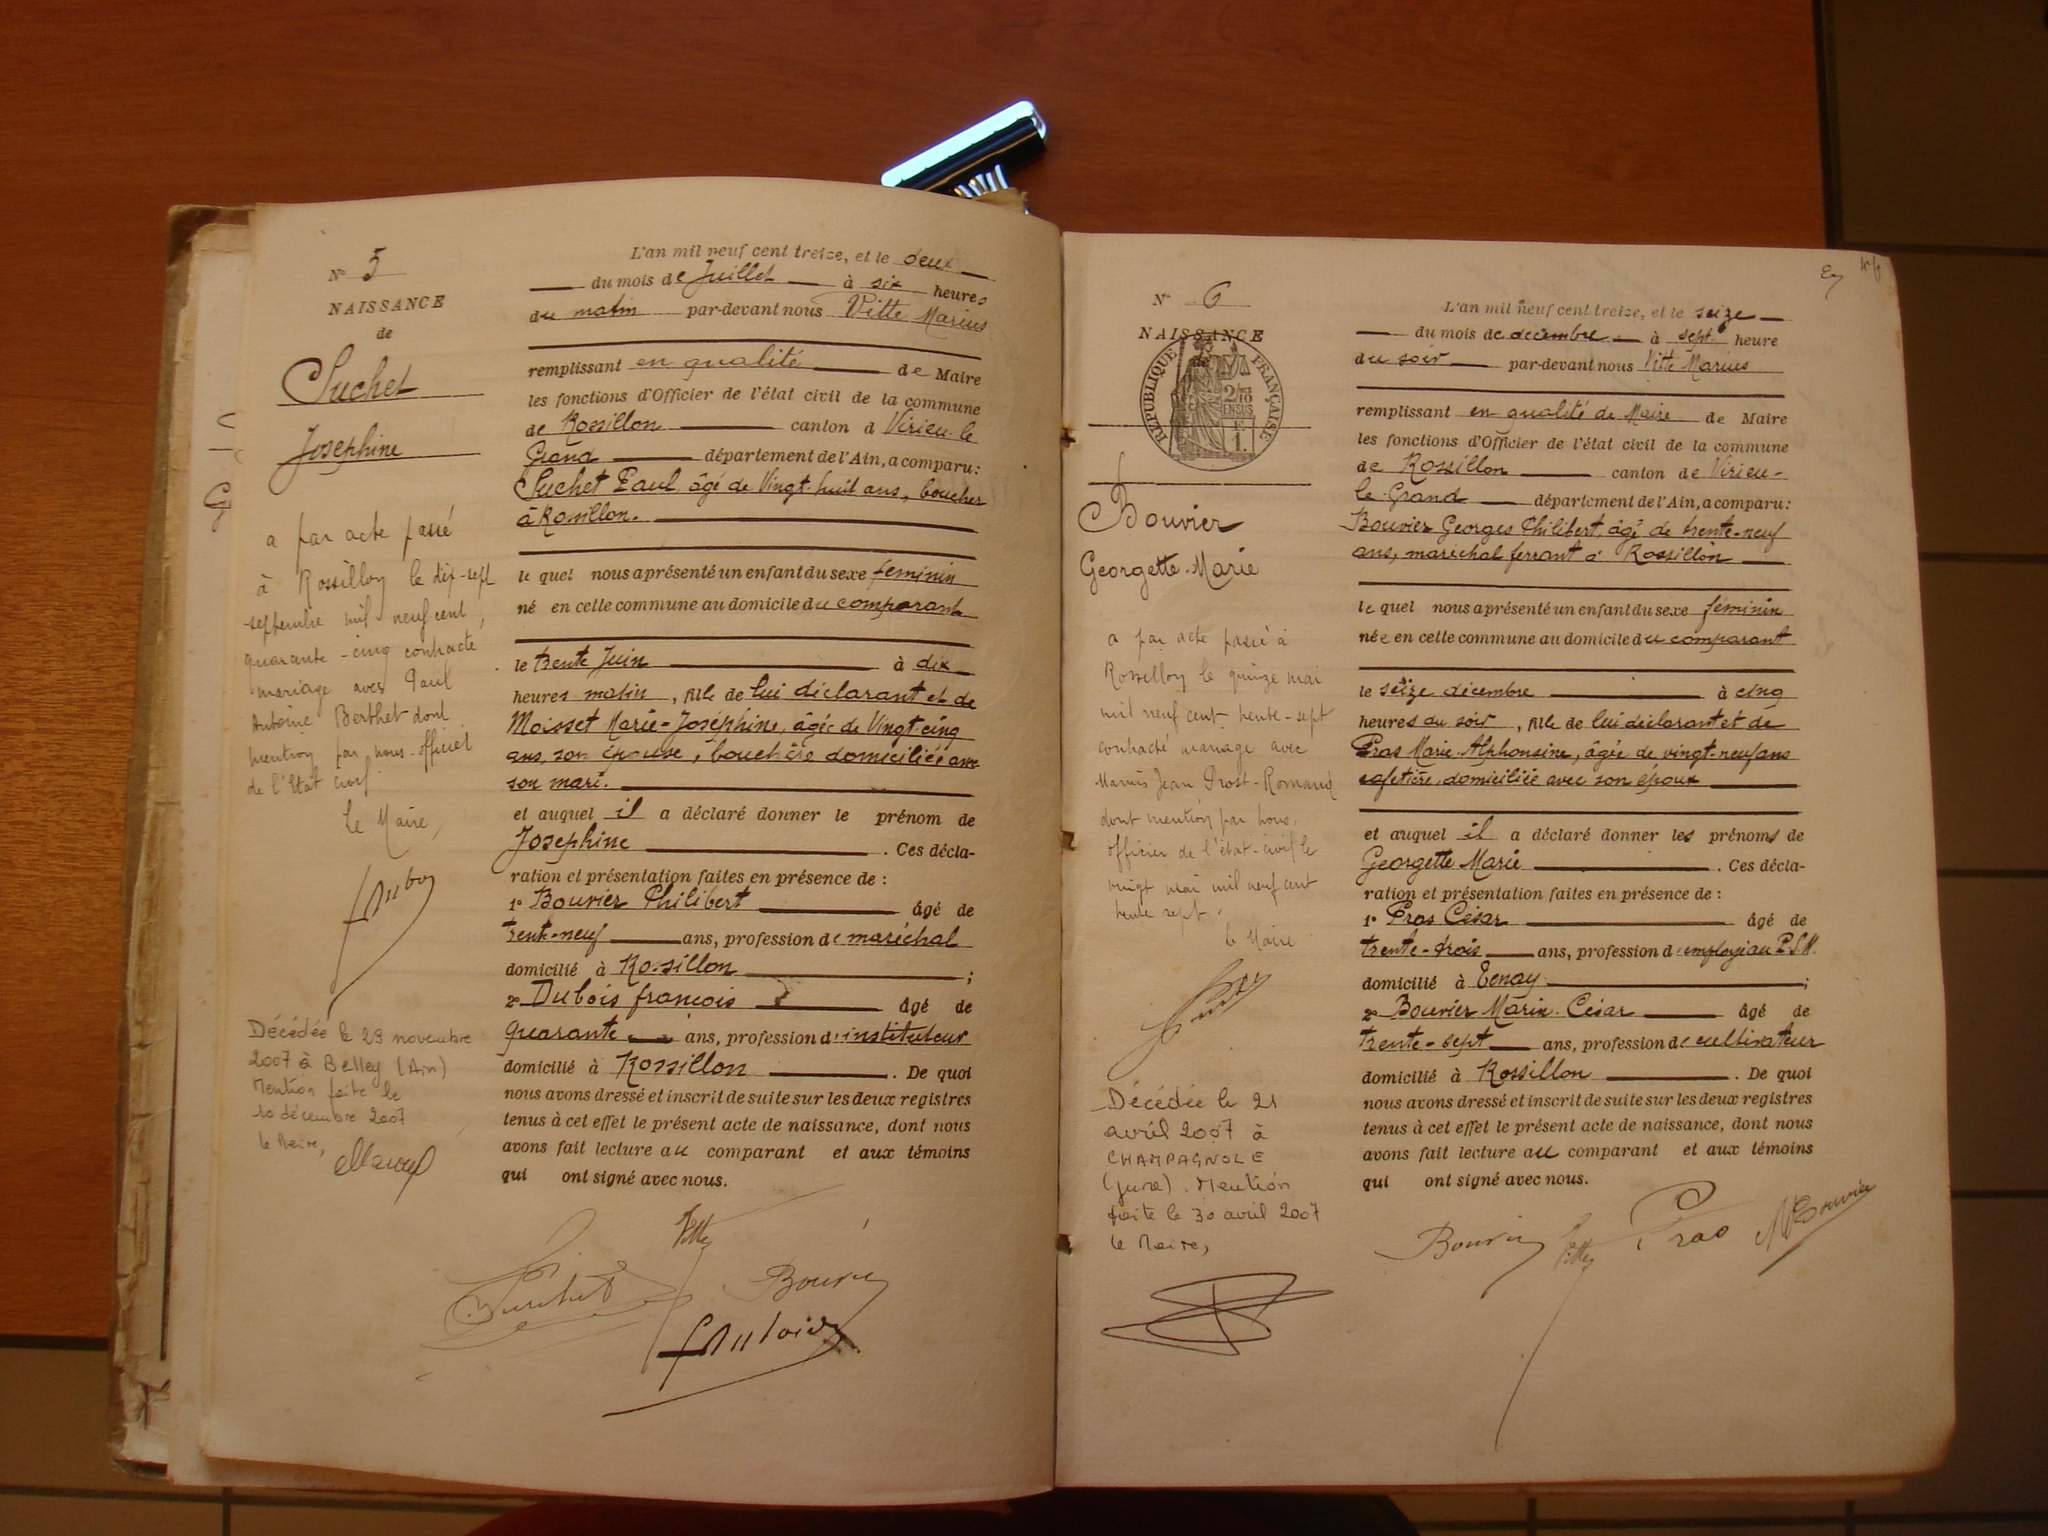 N° 5
NAISSANCE
de
Suchet
Josephine
a par acte passé
à Rossillon le dix-sept
septembre mil neuf cent
quarante-cinq contracté
mariage avec Paul
Antoine Berthet dont
mention par nous officier
de l'Etat civil
le Maire,
Décédée le 29 novembre
2007 à Belley (Ain)
Mention faite le
10 décembre 2007
le Maire,
L'an mil neuf cent treize, et le deux
du mois de Juillet à six heures
du matin par-devant nous Vitte Marius
remplissant en qualité de Maire
les fonctions d'Officier de l'état civil de la commune
de Rossillon canton d Virieu-le
Grand département de l'Ain, a comparu:
Suchet Paul âgé de Vingt-huit ans, boucher
à Rossillon.
le quel nous a présenté un enfant du sexe féminin
né en cette commune au domicile du comparant
le trente Juin à dix
heures matin, fille de lui déclarant et de
Moisset Marie-Joséphine, âgée de Vingt-cinq
ans, son épouse, bouchère domiciliée avec
son mari.
et auquel il a déclaré donner le prénom de
Josephine. Ces décla-
ration et présentation faites en présence de:
1° Bouvier Philibert âgé de
trente-neuf ans, profession de maréchal
domicilié à Rossillon;
2° Dubois françois âgé de
quarante ans, profession d'instituteur
domicilié à Rossillon. De quoi
nous avons dressé et inscrit de suite sur les deux registres
tenus à cet effet le présent acte de naissance, dont nous
avons fait lecture au comparant et aux témoins
qui ont signé avec nous.
Vitte
Suchet Bouvier
f Dubois
N° 6
NAISSANCE
de
RÉPUBLIQUE FRANÇAISE
2/10
EN SUS
1 F.
Bouvier
Georgette-Marie
a par acte passé à
Rossillon le quinze mai
mil neuf cent trente-sept
contracté mariage avec
Marius Jean Prost-Romand
dont mention par nous,
officier de l'état-civil le
vingt mai mil neuf cent
trente sept.
le Maire
Décédée le 21
avril 2007 à
CHAMPAGNOLE
(Jura). Mention
faite le 30 avril 2007
le Maire,
L'an mil neuf cent treize, et le seize
du mois de décembre à sept heure
du soir par-devant nous Vitte Marius
remplissant en qualité de Maire de Maire
les fonctions d'Officier de l'état civil de la commune
de Rossillon canton de Virieu-
le-Grand département de l'Ain, a comparu:
Bouvier Georges Philibert, âgé de trente-neuf
ans, maréchal ferrant à Rossillon
le quel nous a présenté un enfant du sexe féminin
née en cette commune au domicile du comparant
le seize décembre à cinq
heures du soir, fille de lui déclarant et de
Pras Marie Alphonsine, âgée de vingt-neuf ans
cafetière, domiciliée avec son époux
et auquel il a déclaré donner les prénoms de
Georgette Marie. Ces décla-
ration et présentation faites en présence de:
1° Pras César âgé de
trente-trois ans, profession d'employé au P.L.M.
domicilié à Tenay;
2° Bouvier Marie César âgé de
trente-sept ans, profession de cultivateur
domicilié à Rossillon. De quoi
nous avons dressé et inscrit de suite sur les deux registres
tenus à cet effet le présent acte de naissance, dont nous
avons fait lecture au comparant et aux témoins
qui ont signé avec nous.
Bouvier Vitte Pras M Bouvier